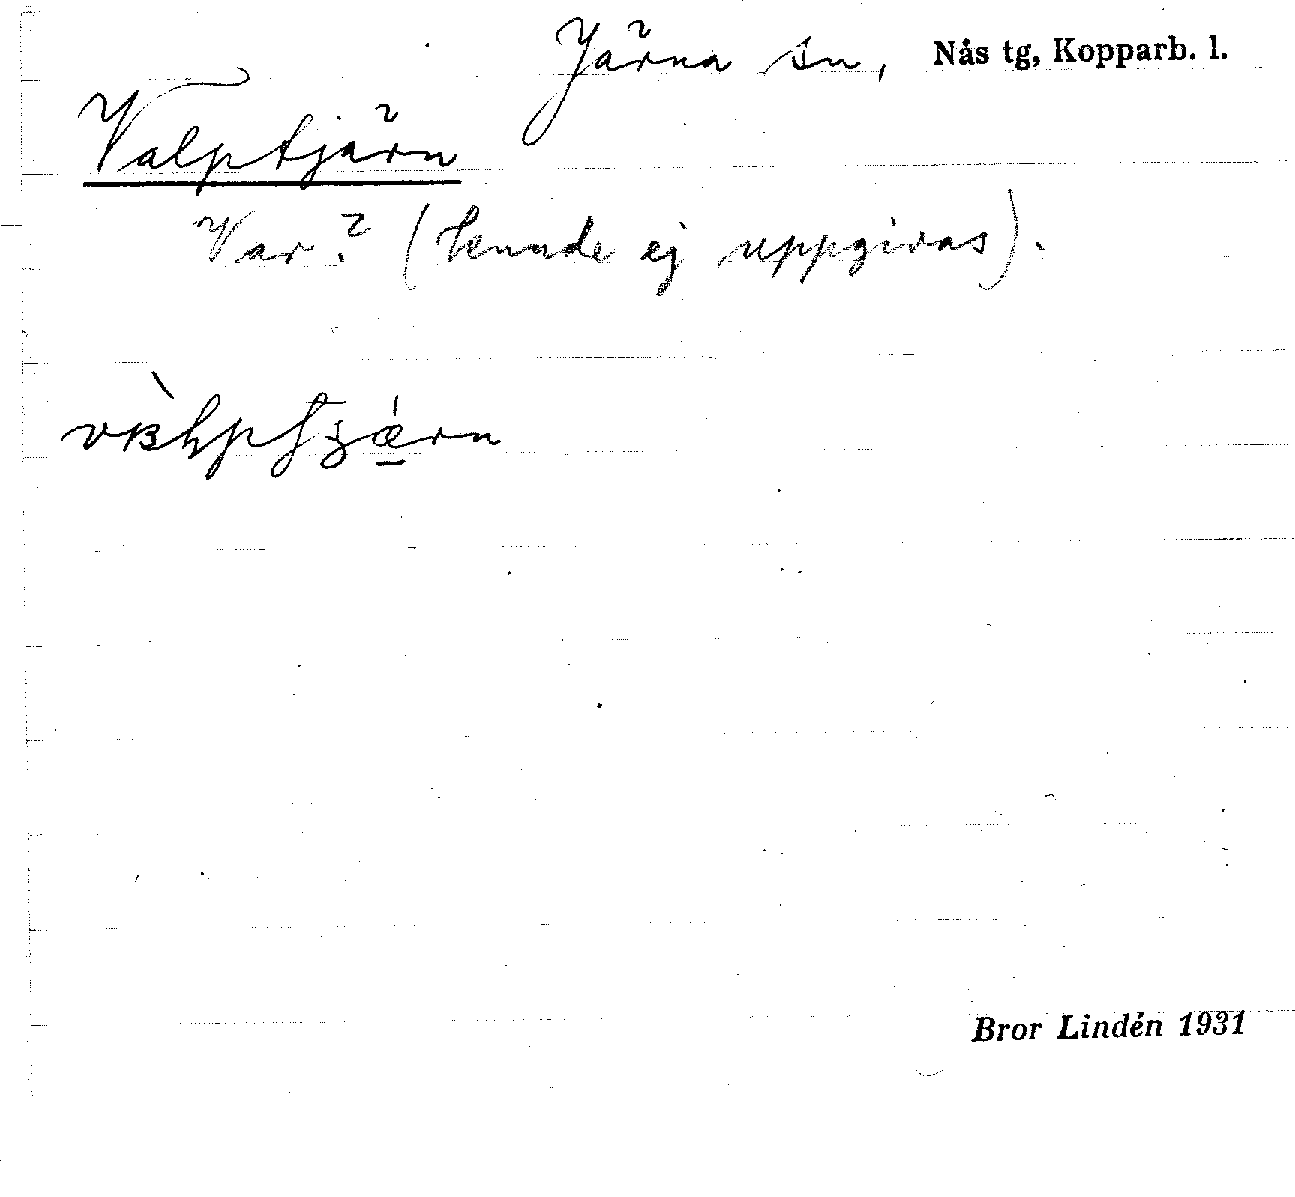 Järna sn, Nås tg, Kopparb. l.
Valptjärn
Var? (kunde ej uppgivas).
Bror Lindén 1931